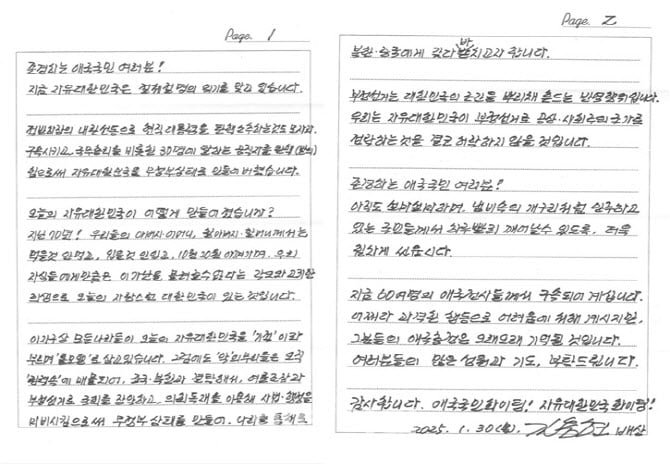 Page. 1
존경하는 애국국민 여러분!
지금 자유대한민국은 절체절명의 위기를 맞고 있습니다.
적반하장의 내란선동으로 현직 대통령을 탄핵소추하는것도 모자라,
구속시키고, 국무총리를 비롯한 30명에 달하는 공직자를 탄핵(발의)
함으로써 자유대한민국을 무정부상태로 만들어버렸습니다.
오늘의 자유대한민국이 어떻게 만들어졌습니까?
지난 70년! 우리들의 아버지·어머니, 할아버지·할머니께서는
먹을것 안먹고, 입을것 안입고, 10원 20원 아껴가며, 우리
자식들에게만큼은 이 가난을 물려줄수 없다는 각오와 고귀한
희생으로 오늘의 자랑스런 대한민국이 있는 것입니다.
이 지구상 모든나라들이 오늘의 자유대한민국을 '기적'이라
부르며 '롤모델'로 삼고있습니다. 그럼에도 '악'의무리들은 오직
에 매몰되어, 종국·북한과 결탁해서, 여론조작과
부정선거로 국회를 장악하고, 의회독재를 이용해 사법·행정을
마비시킴으로써 무정부 상태를 만들어, 나라를 통째로
Page. 2
북한·중국에게 갖다 바치고자 합니다.
부정선거는 대한민국의 근간을 뿌리채 흔드는 반역행위입니다.
우리는 자유대한민국이 부정선거로 공산·사회주의 국가로
전락하는것은 결코 허락하지 않을 것입니다.
존경하는 애국국민 여러분!
아직도 설마설마하며, 냄비속의 개구리처럼 안주하고
있는 국민들께서 하루빨리 깨어날수 있도록, 더욱
힘차게 싸웁시다.
지금 60여명의 애국전사들께서 구속되어 계십니다.
어쩌다 과격한 행동으로 어려움에 처해 계시지만,
그분들의 애국충정은 오래오래 기억될 것입니다.
여러분들의 많은 성원과 기도, 부탁드립니다.
감사합니다. 애국국민화이팅! 자유대한민국화이팅!
2025. 1. 30(목). 김용현 배상